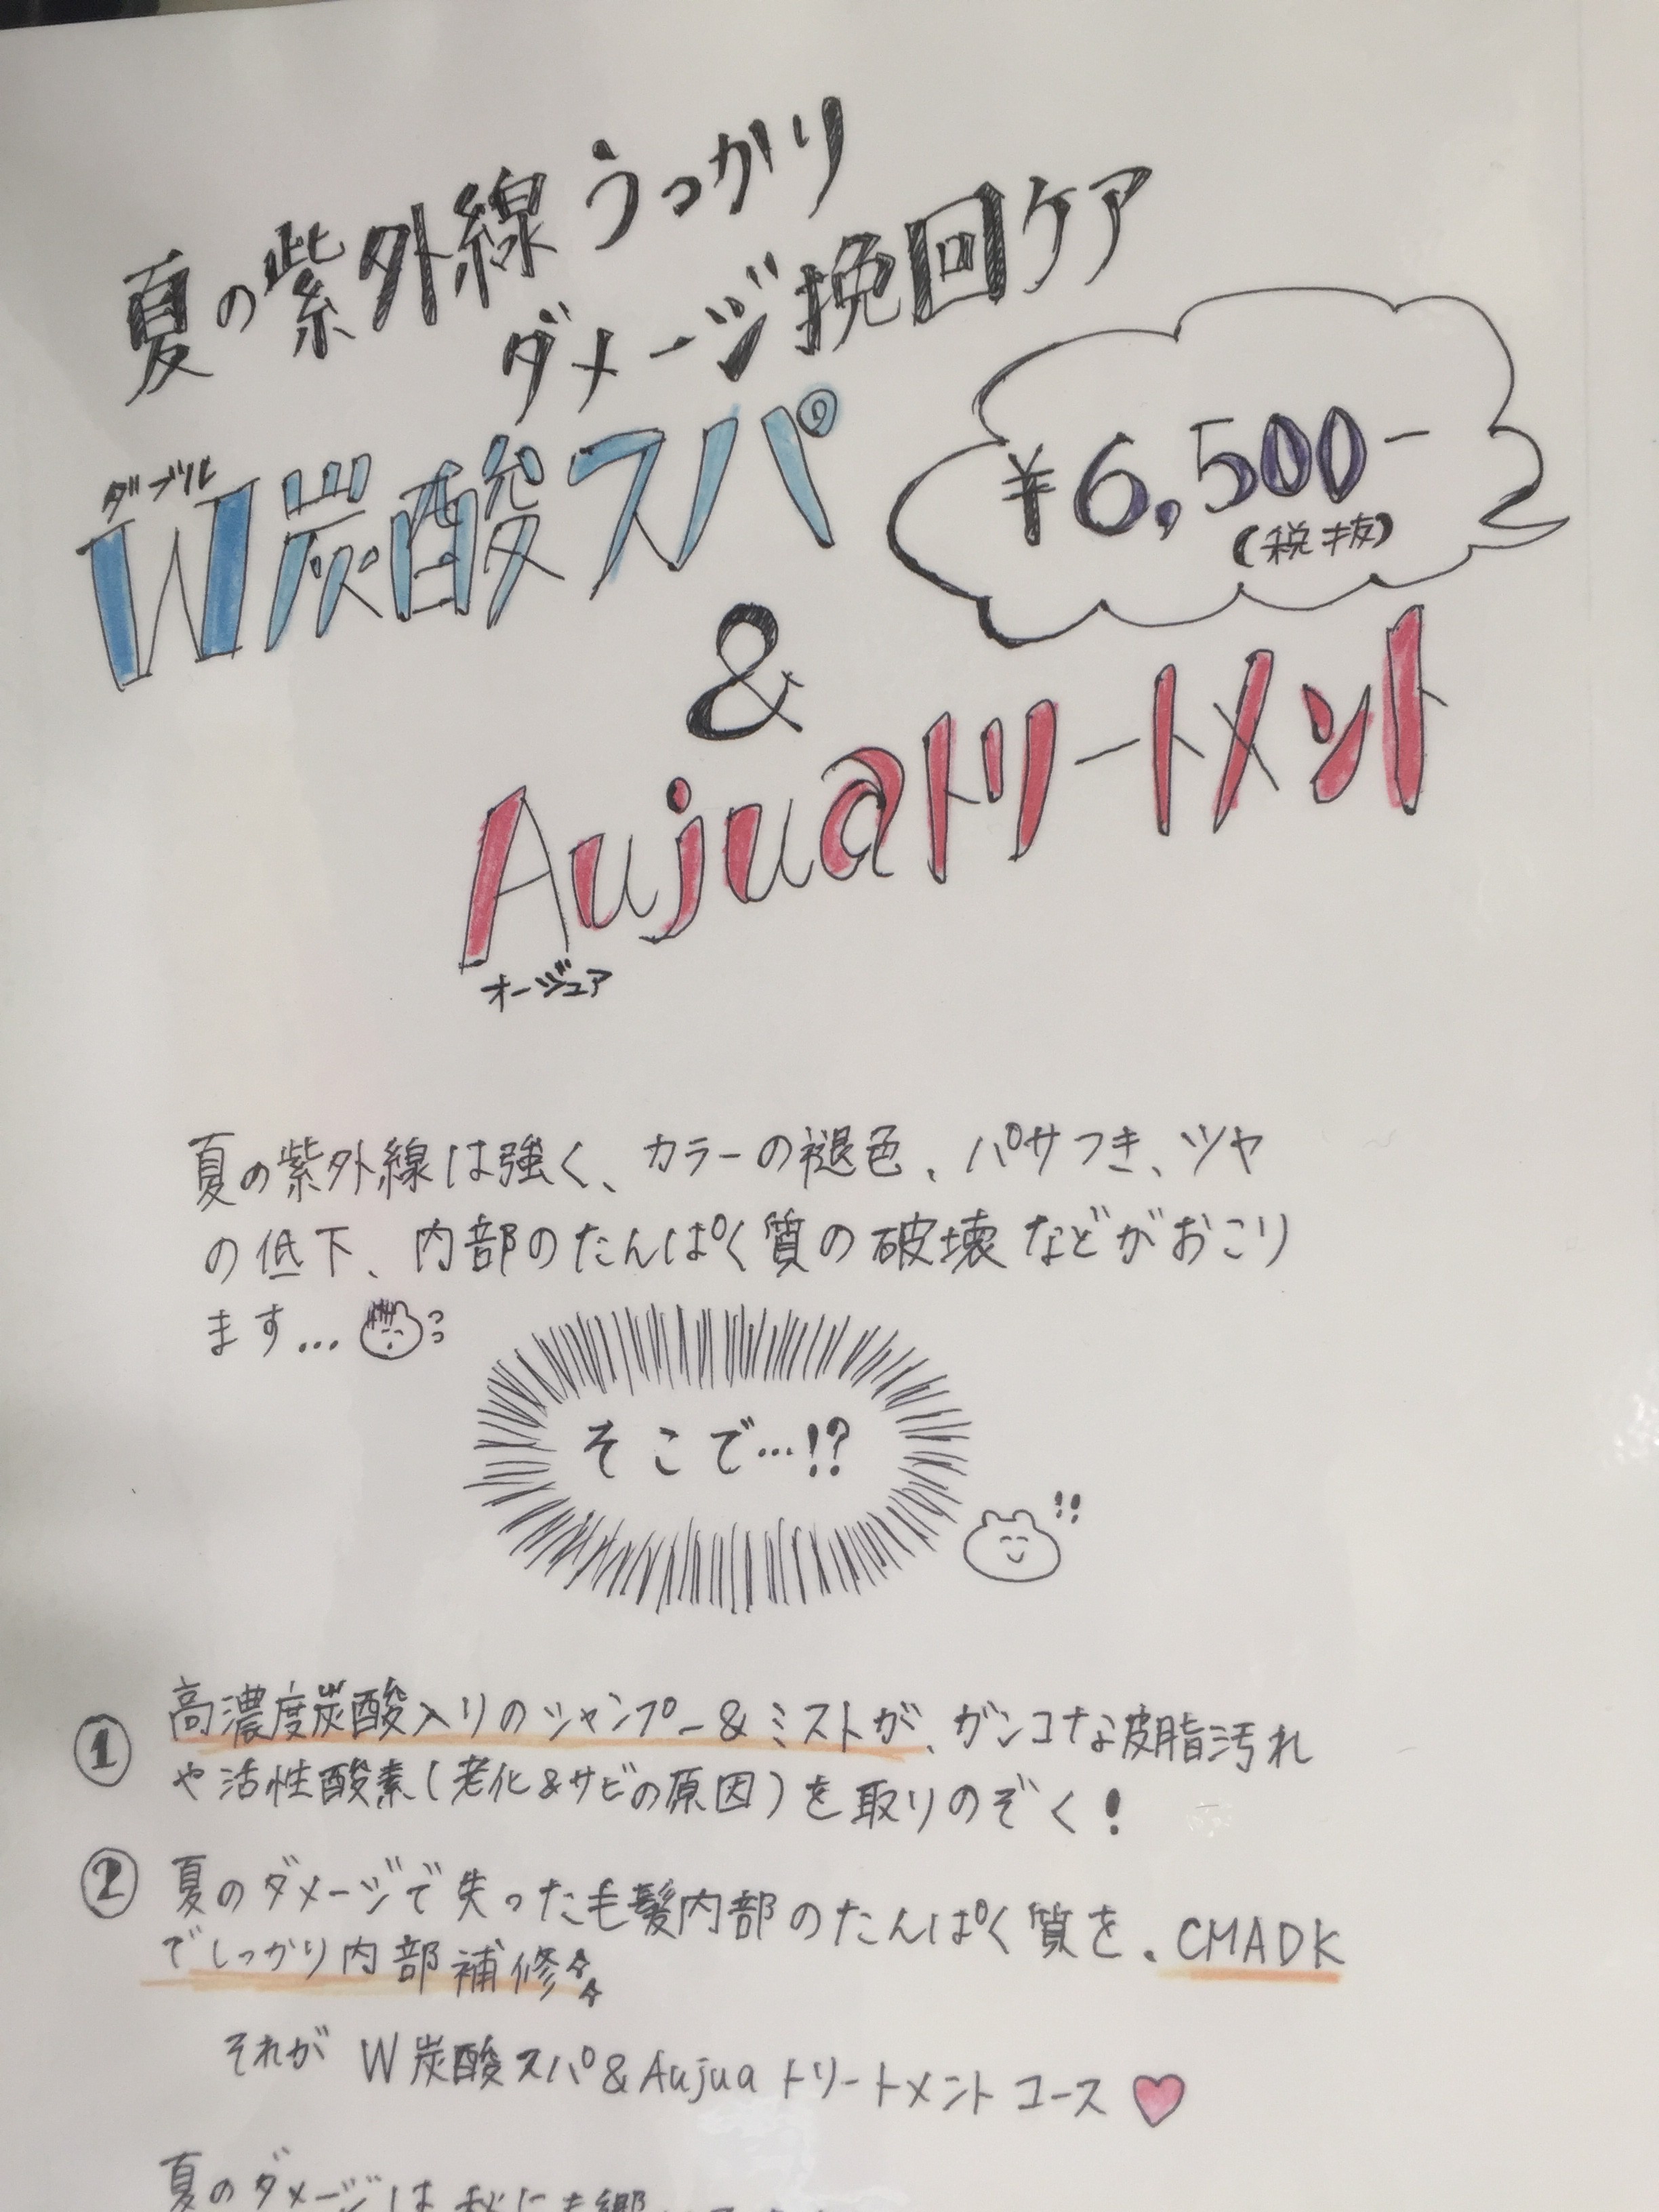 夏の紫外線うっかり
ダメージ挽回ケア
ダブル
W炭酸スパ
¥6,500-
(税抜)
&
Aujuaトリートメント
オージュア
夏の紫外線は強く、カラーの褪色、パサつき、ツヤ
の低下、内部のたんぱく質の破壊などがおこり
ます...
そこで…!?
!!
① 高濃度炭酸入りのシャンプー&ミストが、ガンコな皮脂汚れ
や活性酸素(老化&サビの原因)を取りのぞく!
② 夏のダメージで失った毛髪内部のたんぱく質を、CMADK
でしっかり内部補修
それが W炭酸スパ&Aujuaトリートメントコース♥
夏のダメージは秋にも響